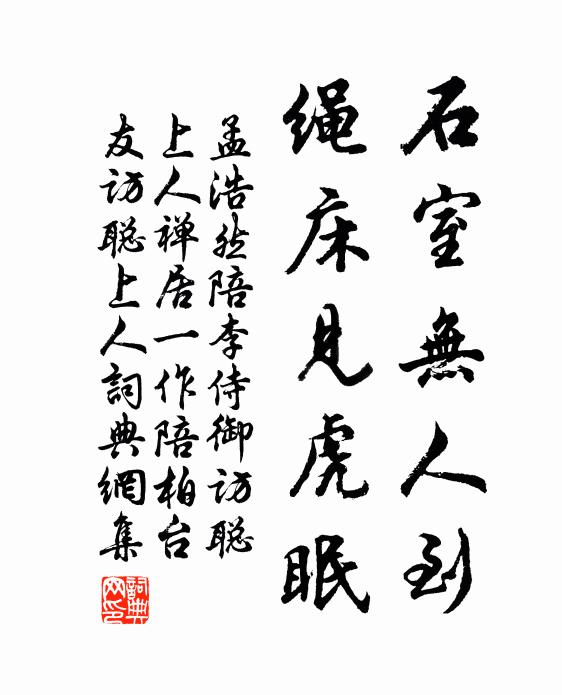 石室無人到
绳床見虎眠
孟浩然陪李侍御訪聪
上人禅居一作陪柏台
友訪聪上人詞典網集
詞典网印